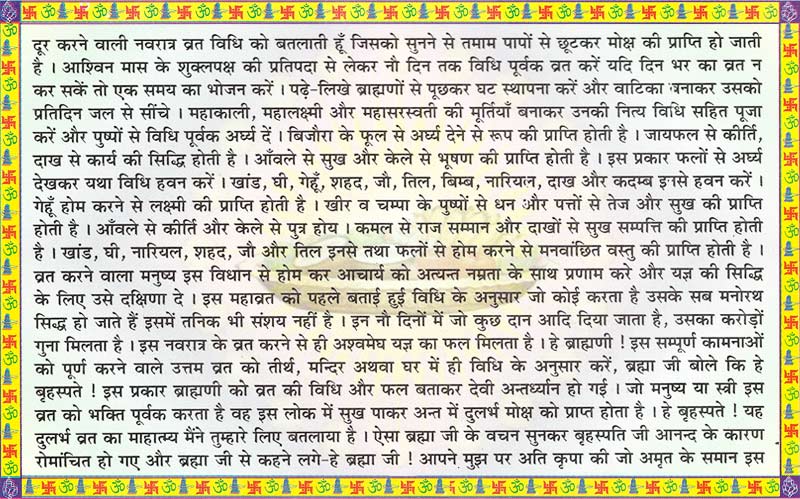 दूर करने वाली नवरात्र व्रत विधि को बतलाती हूँ जिसको सुनने से तमाम पापों से छूटकर मोक्ष की प्राप्ति हो जाती
है । आश्विन मास के शुक्लपक्ष की प्रतिपदा से लेकर नौ दिन तक विधि पूर्वक व्रत करें यदि दिन भर का व्रत न
कर सकें तो एक समय का भोजन करें । पढ़े-लिखे ब्राह्मणों से पूछकर घट स्थापना करें और वाटिका बनाकर उसको
प्रतिदिन जल से सींचे । महाकाली, महालक्ष्मी और महासरस्वती की मूर्तियाँ बनाकर उनकी नित्य विधि सहित पूजा
करें और पुष्पों से विधि पूर्वक अर्घ्य दें । बिजौरा के फूल से अर्घ्य देने से रूप की प्राप्ति होती है । जायफल से कीर्ति,
दाख से कार्य की सिद्धि होती है । आँवले से सुख और केले से भूषण की प्राप्ति होती है । इस प्रकार फलों से अर्घ्य
देखकर यथा विधि हवन करें । खांड, घी, गेहूँ, शहद, जौ, तिल, बिम्ब, नारियल, दाख और कदम्ब इनसे हवन करें ।
गेहूँ होम करने से लक्ष्मी की प्राप्ति होती है । खीर व चम्पा के पुष्पों से धन और पत्तों से तेज और सुख की प्राप्ति
होती है । आँवले से कीर्ति और केले से पुत्र होय । कमल से राज सम्मान और दाखों से सुख सम्पत्ति की प्राप्ति होती
है । खांड, घी, नारियल, शहद, जौ और तिल इनसे तथा फलों से होम करने से मनवांछित वस्तु की प्राप्ति होती है ।
व्रत करने वाला मनुष्य इस विधान से होम कर आचार्य को अत्यन्त नम्रता के साथ प्रणाम करे और यज्ञ की सिद्धि
के लिए उसे दक्षिणा दे । इस महाव्रत को पहले बताई हुई विधि के अनुसार जो कोई करता है उसके सब मनोरथ
सिद्ध हो जाते हैं इसमें तनिक भी संशय नहीं है । इन नौ दिनों में जो कुछ दान आदि दिया जाता है, उसका करोड़ों
गुना मिलता है । इस नवरात्र के व्रत करने से ही अश्वमेघ यज्ञ का फल मिलता है । हे ब्राह्मणी ! इस सम्पूर्ण कामनाओं
को पूर्ण करने वाले उत्तम व्रत को तीर्थ, मन्दिर अथवा घर में ही विधि के अनुसार करें, ब्रह्मा जी बोले कि हे
बृहस्पते ! इस प्रकार ब्राह्मणी को व्रत की विधि और फल बताकर देवी अन्तर्ध्यान हो गई । जो मनुष्य या स्त्री इस
व्रत को भक्ति पूर्वक करता है वह इस लोक में सुख पाकर अन्त में दुलर्भ मोक्ष को प्राप्त होता है । हे बृहस्पते ! यह
दुलर्भ व्रत का माहात्म्य मैंने तुम्हारे लिए बतलाया है । ऐसा ब्रह्मा जी के वचन सुनकर बृहस्पति जी आनन्द के कारण
रोमांचित हो गए और ब्रह्मा जी से कहने लगे-हे ब्रह्मा जी ! आपने मुझ पर अति कृपा की जो अमृत के समान इस